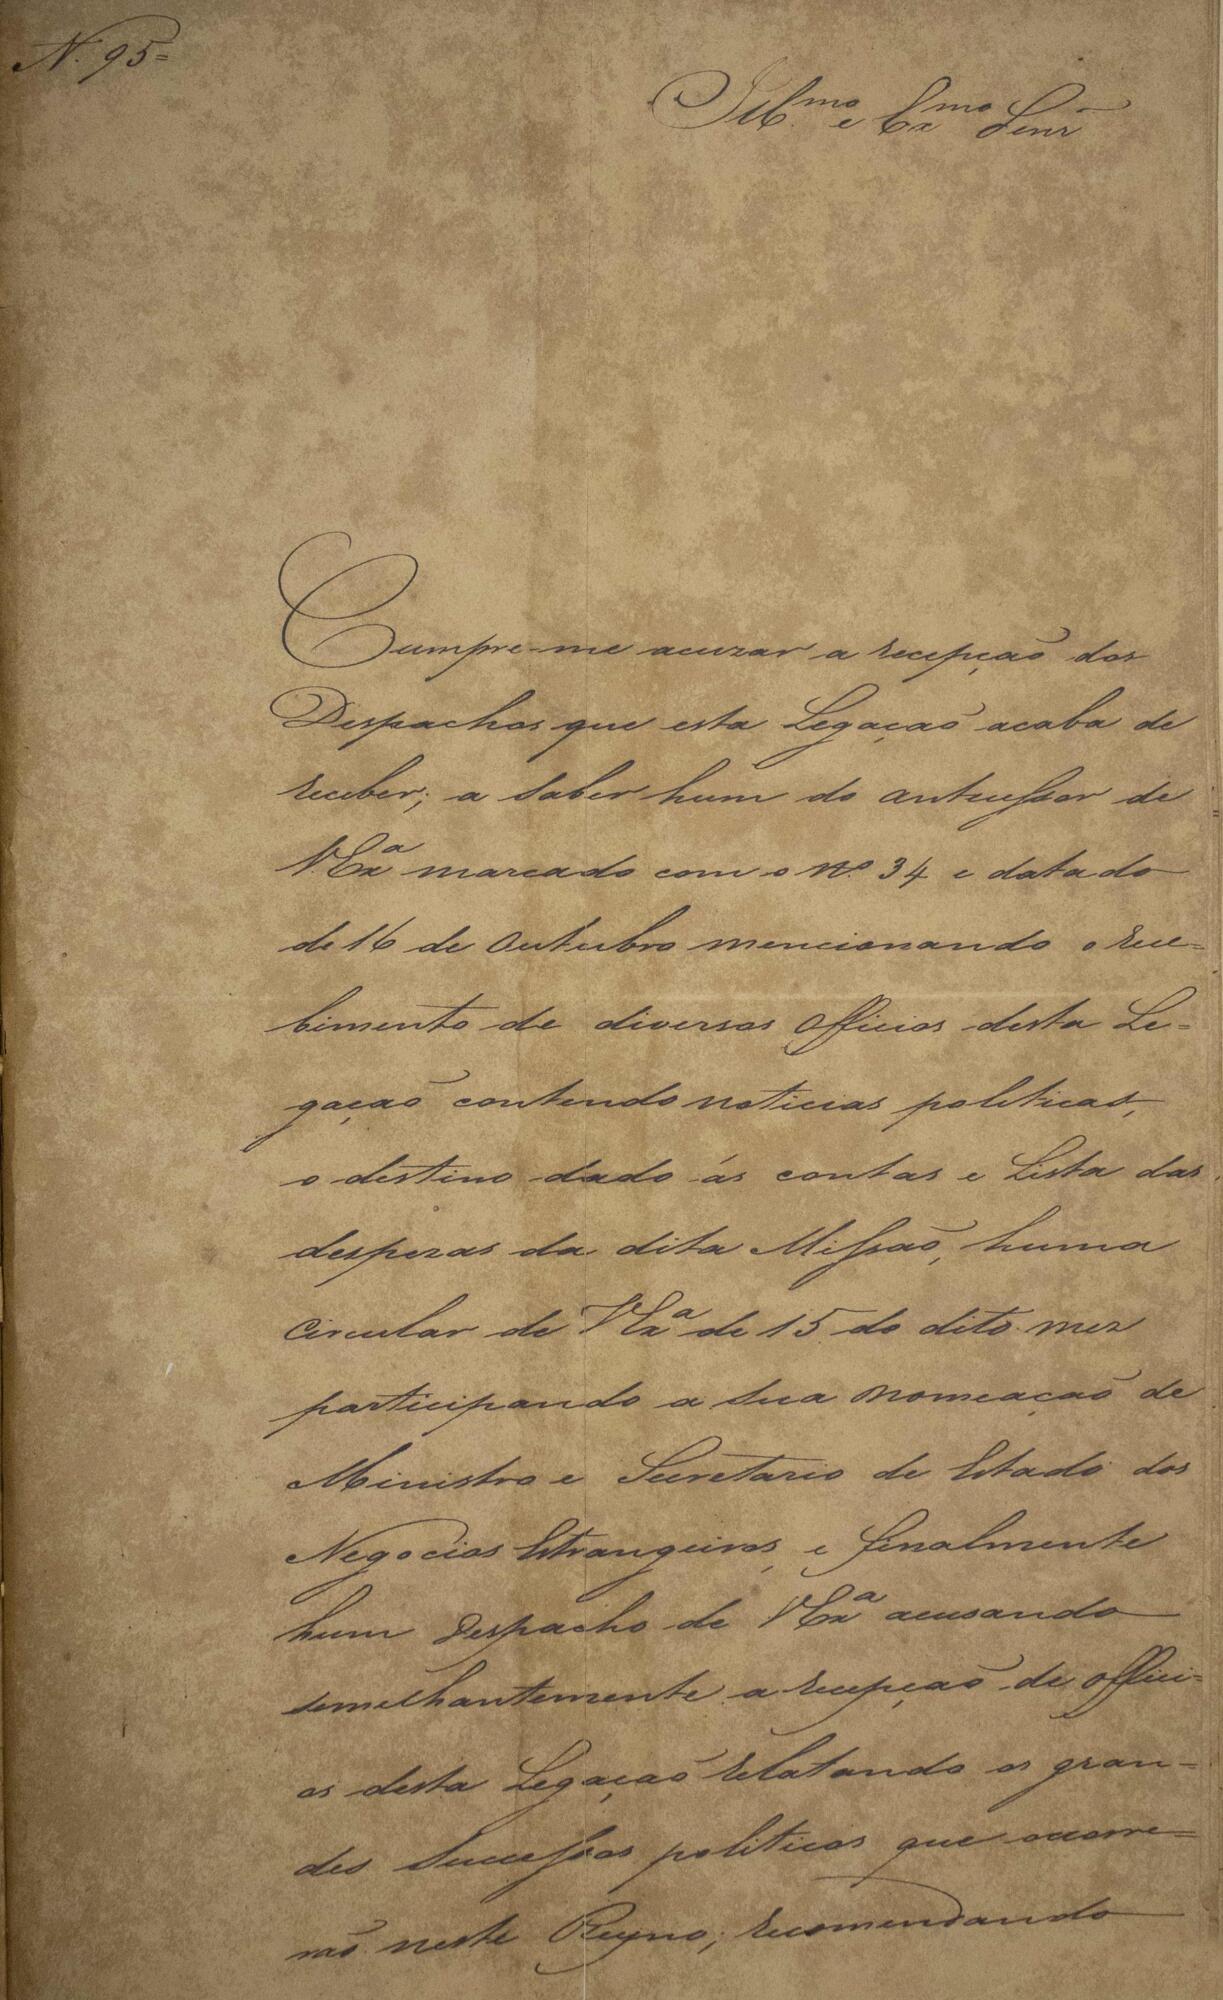 N. 95=
Ill.mo e Ex.mo Senr
Cumpre-me acuzar a recepçaõ dos
Despachos que esta Legaçaõ acaba de
receber; a saber hum do antecessor de
V.Exa marcado com o nº 34 e datado
de 16 de Outubro mencionando o rece=
bimento de diversos Officios desta Le=
gaçaõ contendo noticias politicas,
o destino dado ás contas e Lista das
despezas da dita Missaõ, huma
Circular de VExa de 15 do dito mez
participando a sua nomeaçaõ de
Ministro e Secretario de Estado dos
Negocios Estrangeiros, e finalmente
hum Despacho de VExa acusando
semelhantemente a recepçaõ de offici=
os desta Legaçaõ relatando os gran=
des Successos politicos que ocorre=
raõ neste Reyno; recomendando